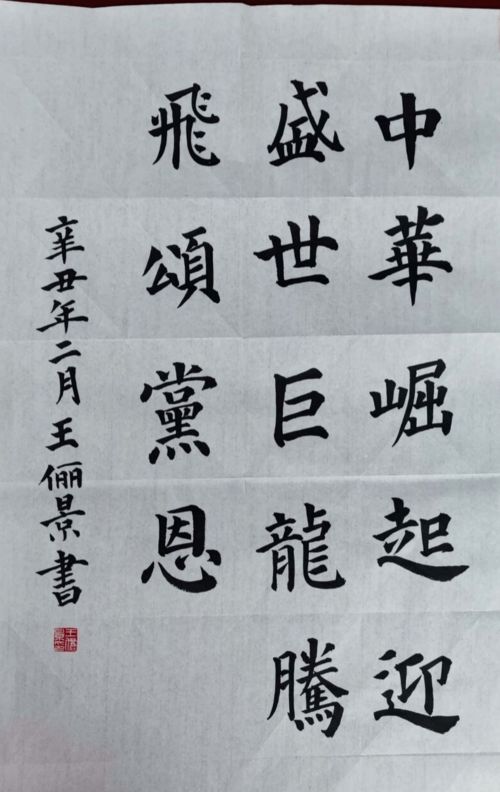 中華崛起迎
盛世巨龍騰
飛頌黨恩
辛丑年二月王俪景書